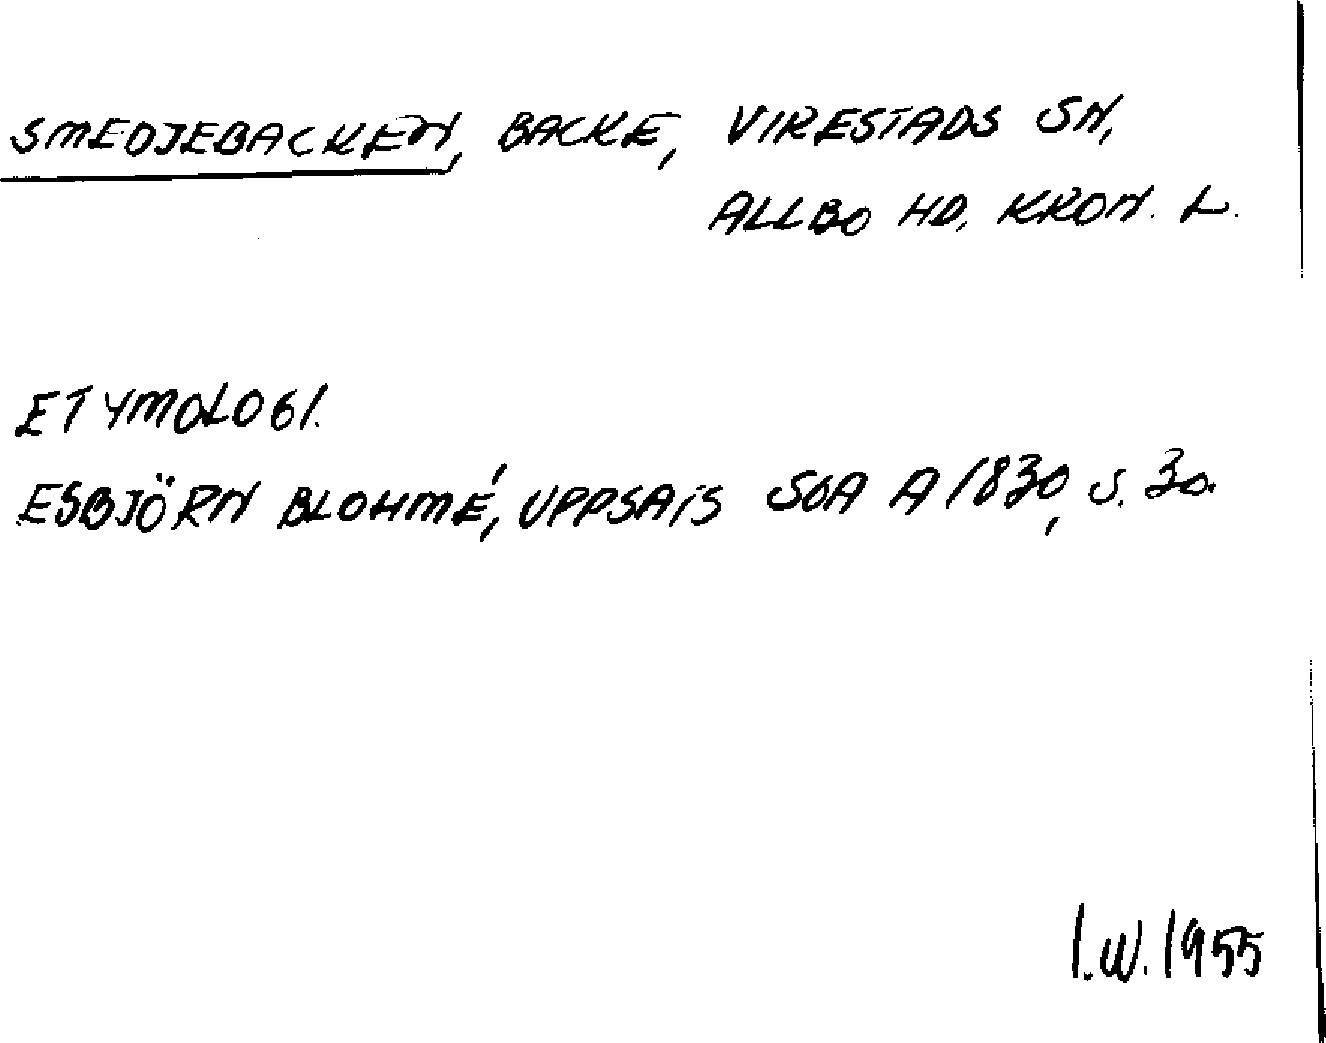 SMEDJEBACKEN, BACKE, VIRESTADS SN,
ALLBO HD, KRON. L.
ETYMOLOGI.
ESBJÖRN BLOHMÉ, UPPSATS SOA A 1830, S. 30.
I.W. 1955